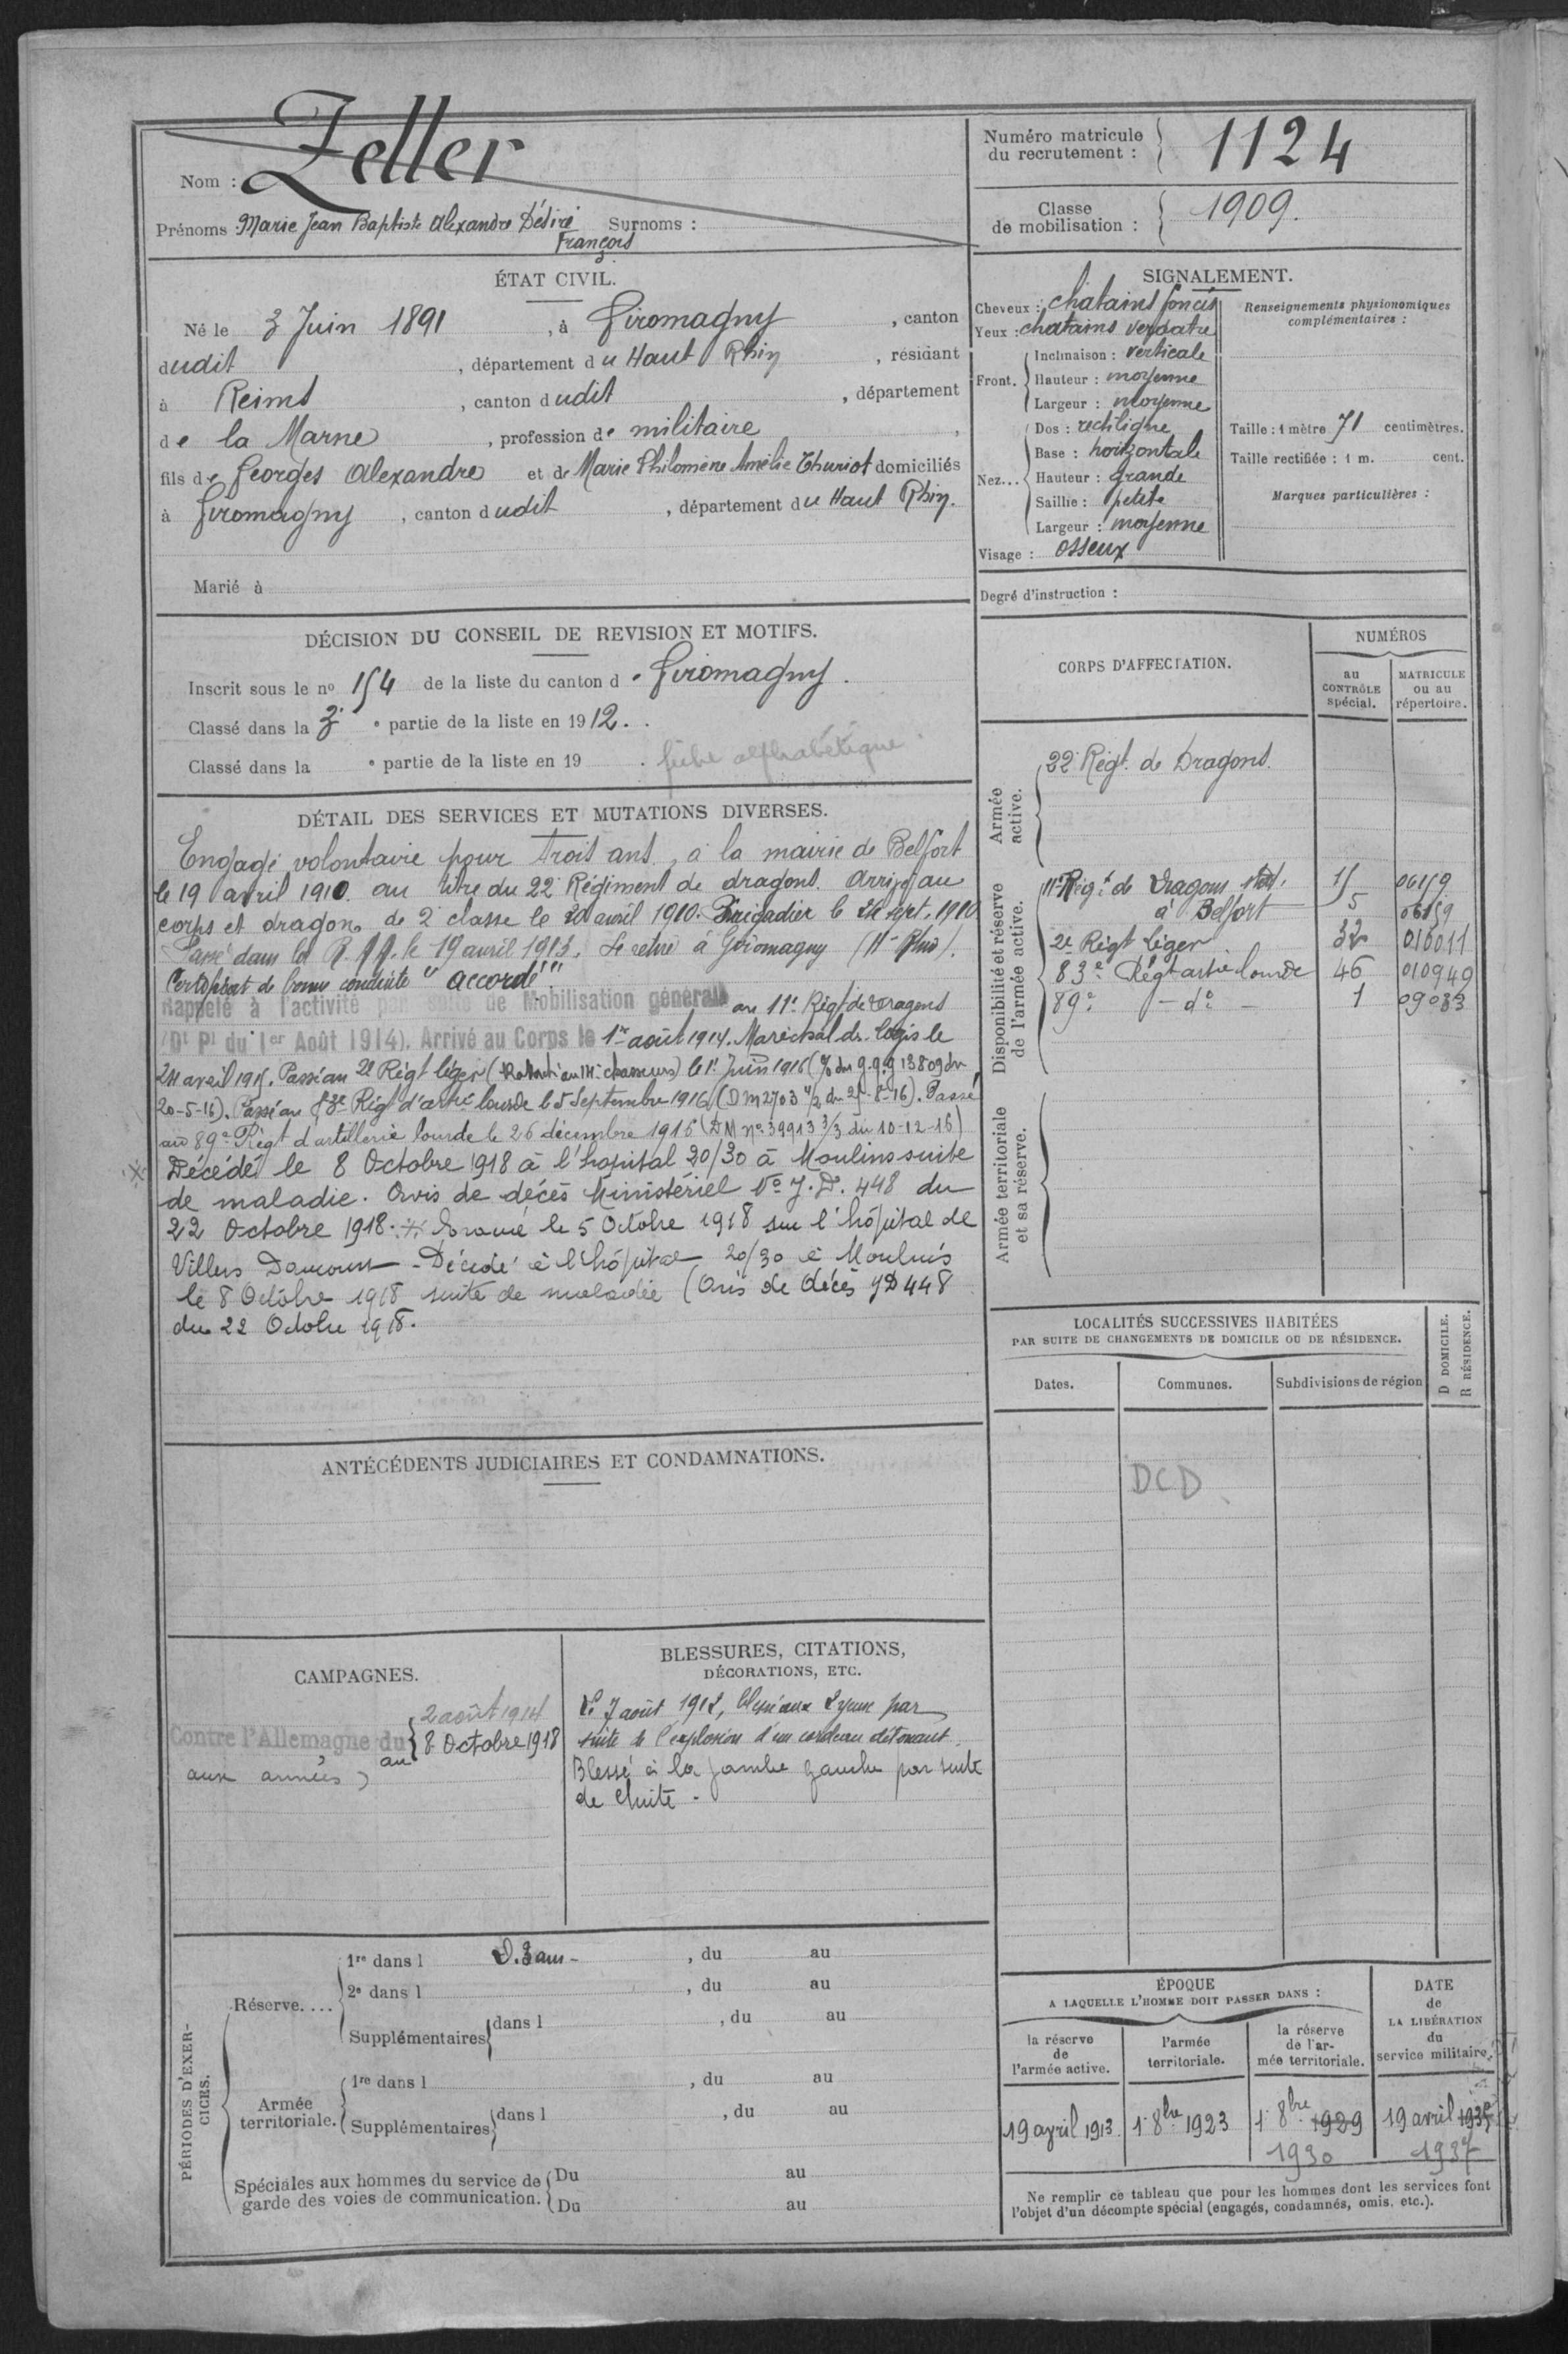 Nom : Zeller
Prénoms : Marie Jean Baptiste Alexandre Désiré Surnoms :
François
Numéro matricule du recrutement : 1124
Classe de mobilisation : 1909.
ÉTAT CIVIL.
Né le 3 Juin 1891, à Giromagny, canton
dudit, département du Haut Rhin, résidant
à Reims, canton dudit, département
de la Marne, profession de militaire,
fils de Georges Alexandre et de Marie Philomène Amélie Thuriot domiciliés
à Giromagny, canton dudit, département du Haut Rhin.
Marié à
SIGNALEMENT.
Cheveux : chatains foncés
Yeux : chatains verdatre
Front. Inclinaison : verticale
Hauteur : moyenne
Largeur : moyenne
Nez... Dos : rectiligne
Base : horizontale
Hauteur : grande
Saillie : petite
Largeur : moyenne
Visage : osseux
Renseignements physionomiques
complémentaires :
Taille : 1 mètre 71 centimètres.
Taille rectifiée : 1 m. cent.
Marques particulières :
Degré d'instruction :
DÉCISION DU CONSEIL DE REVISION ET MOTIFS.
Inscrit sous le no 154 de la liste du canton de Giromagny.
Classé dans la 3e partie de la liste en 1912.
Classé dans la e partie de la liste en 19 .
fiche alphabétique.
DÉTAIL DES SERVICES ET MUTATIONS DIVERSES.
Engagé volontaire pour trois ans, à la mairie de Belfort
le 19 avril 1910 au titre du 22e Régiment de dragons. Arrivé au
corps et dragon de 2e classe le 20 avril 1910. Brigadier le 24 sept. 1910
Passé dans la R. le 19 avril 1913. Se retire à Giromagny (Ht Rhin).
Certificat de bonne conduite "accordé".
Rappelé à l'activité par suite de Mobilisation générale au 11e Régt de Dragons
(Dt Pl du 1er Août 1914). Arrivé au Corps le 1er août 1914. Maréchal des logis le
24 avril 1915. Passé au 2e Régt léger (Rattaché au 14e chasseurs) le 1er Juin 1916 (% du g.q.g 13809 du
20-5-16). Passé au 83e Régt d'artie lourde le 5 Septembre 1916 (DM 2703 1/2 du 25-8-16). Passé
au 89e Régt d'artillerie lourde le 26 décembre 1916 (DM No 39913 3/3 du 10-12-16)
Décédé le 8 Octobre 1918 à l'hopital 20/30 à Moulins suite
de maladie. Avis de décès Ministériel No J.D. 448 du
22 Octobre 1918. * Evacué le 5 Octobre 1918 sur l'hôpital de
Villers Daucourt - Décédé à l'hôpital 20/30 à Moulins
le 8 Octobre 1918 suite de maladie (Avis de décès JD 448
du 22 Octobre 1918.
CORPS D'AFFECTATION.
NUMÉROS
au CONTRÔLE spécial.
MATRICULE ou au répertoire.
Armée active.
22e Régt. de Dragons.
Disponibilité et réserve de l'armée active.
11e Régt de Dragons 15 06159
à Belfort 5 06159
2e Régt léger 32 010011
83e Régt artie lourde 46 010949
89e - do - 1 09083
Armée territoriale et sa réserve.
LOCALITÉS SUCCESSIVES HABITÉES
PAR SUITE DE CHANGEMENTS DE DOMICILE OU DE RÉSIDENCE.
Dates.
Communes.
Subdivisions de région
D DOMICILE.
R RÉSIDENCE.
DCD
ANTÉCÉDENTS JUDICIAIRES ET CONDAMNATIONS.
CAMPAGNES.
Contre l'Allemagne du 2 août 1914
au 8 Octobre 1918
aux armées
BLESSURES, CITATIONS,
DÉCORATIONS, ETC.
Le 7 août 1912, blessé aux 2 yeux par
suite de l'explosion d'un cordeau détonant.
Blessé à la jambe gauche par suite
de chute.
PÉRIODES D'EXERCICES.
Réserve....
1re dans l , du au
2e dans l , du au
Supplémentaires dans l , du au
Armée territoriale.
1re dans l , du au
Supplémentaires dans l , du au
Spéciales aux hommes du service de
garde des voies de communication.
Du au
Du au
ÉPOQUE
A LAQUELLE L'HOMME DOIT PASSER DANS :
la réserve de l'armée active.
l'armée territoriale.
la réserve de l'armée territoriale.
DATE de LA LIBÉRATION du service militaire.
19 avril 1913
1er 8bre 1923
1er 8bre 1929
1930
19 avril
1937
Ne remplir ce tableau que pour les hommes dont les services font
l'objet d'un décompte spécial (engagés, condamnés, omis, etc.).